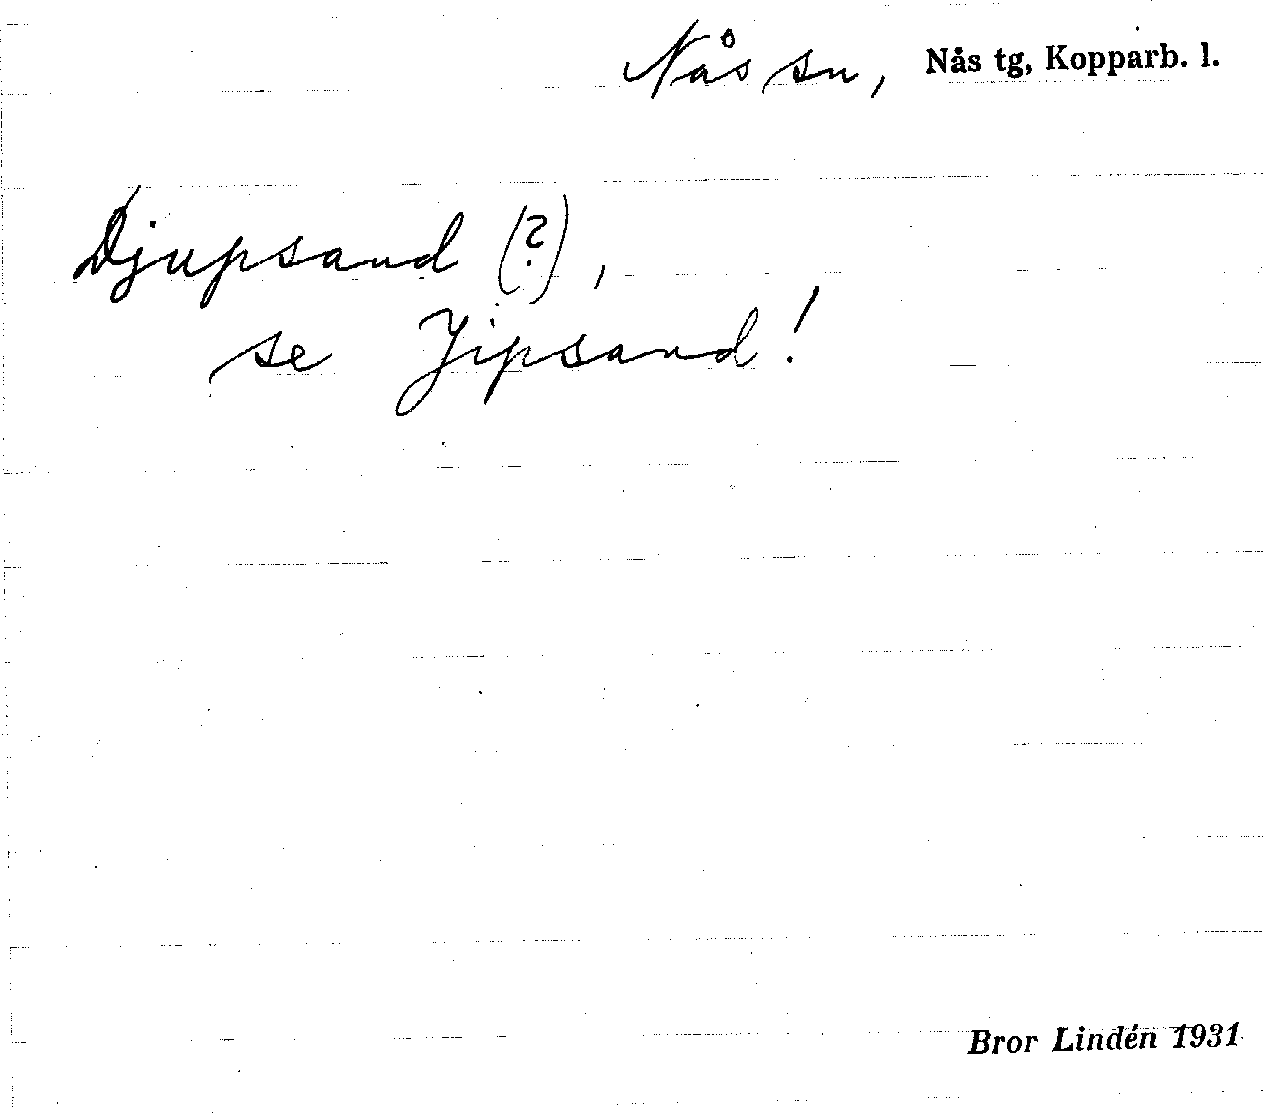 Nås sn, Nås tg, Kopparb. l.
Djupsand (?),
se Jipsand!
Bror Lindén 1931